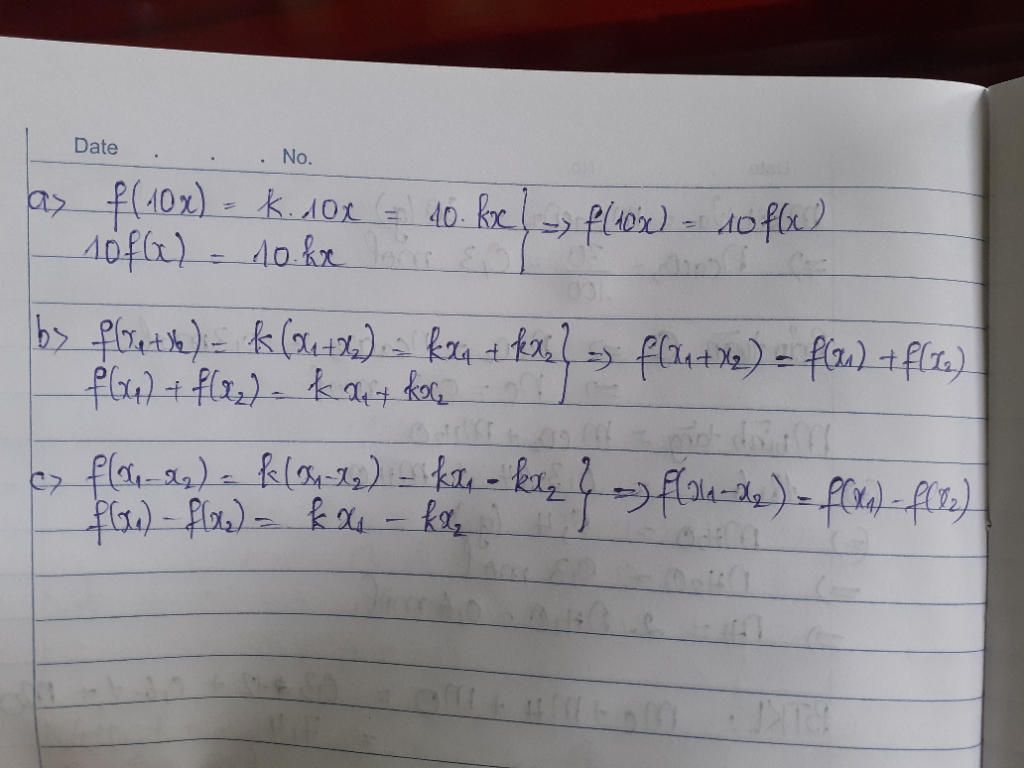 Date . . . No.
a> f(10x) = k.10x = 10.kx } => f(10x) = 10f(x)
10f(x) = 10.kx
b> f(x₁+x₂) = k(x₁+x₂) = kx₁ + kx₂ } => f(x₁+x₂) = f(x₁) + f(x₂)
f(x₁) + f(x₂) = kx₁ + kx₂
c> f(x₁-x₂) = k(x₁-x₂) = kx₁ - kx₂ } => f(x₁-x₂) = f(x₁) - f(x₂)
f(x₁) - f(x₂) = kx₁ - kx₂